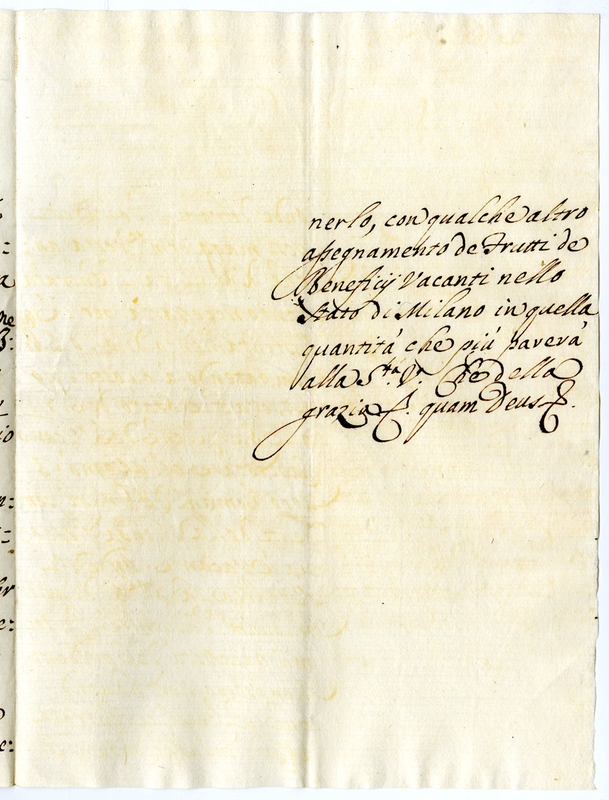 nerlo, con qualche altro
assegnamento de Frutti de
Beneficij Vacanti nello
Stato di Milano in quella
quantità che più parerà
alla S.tà V.ra Che della
grazia &. quam Deus &.